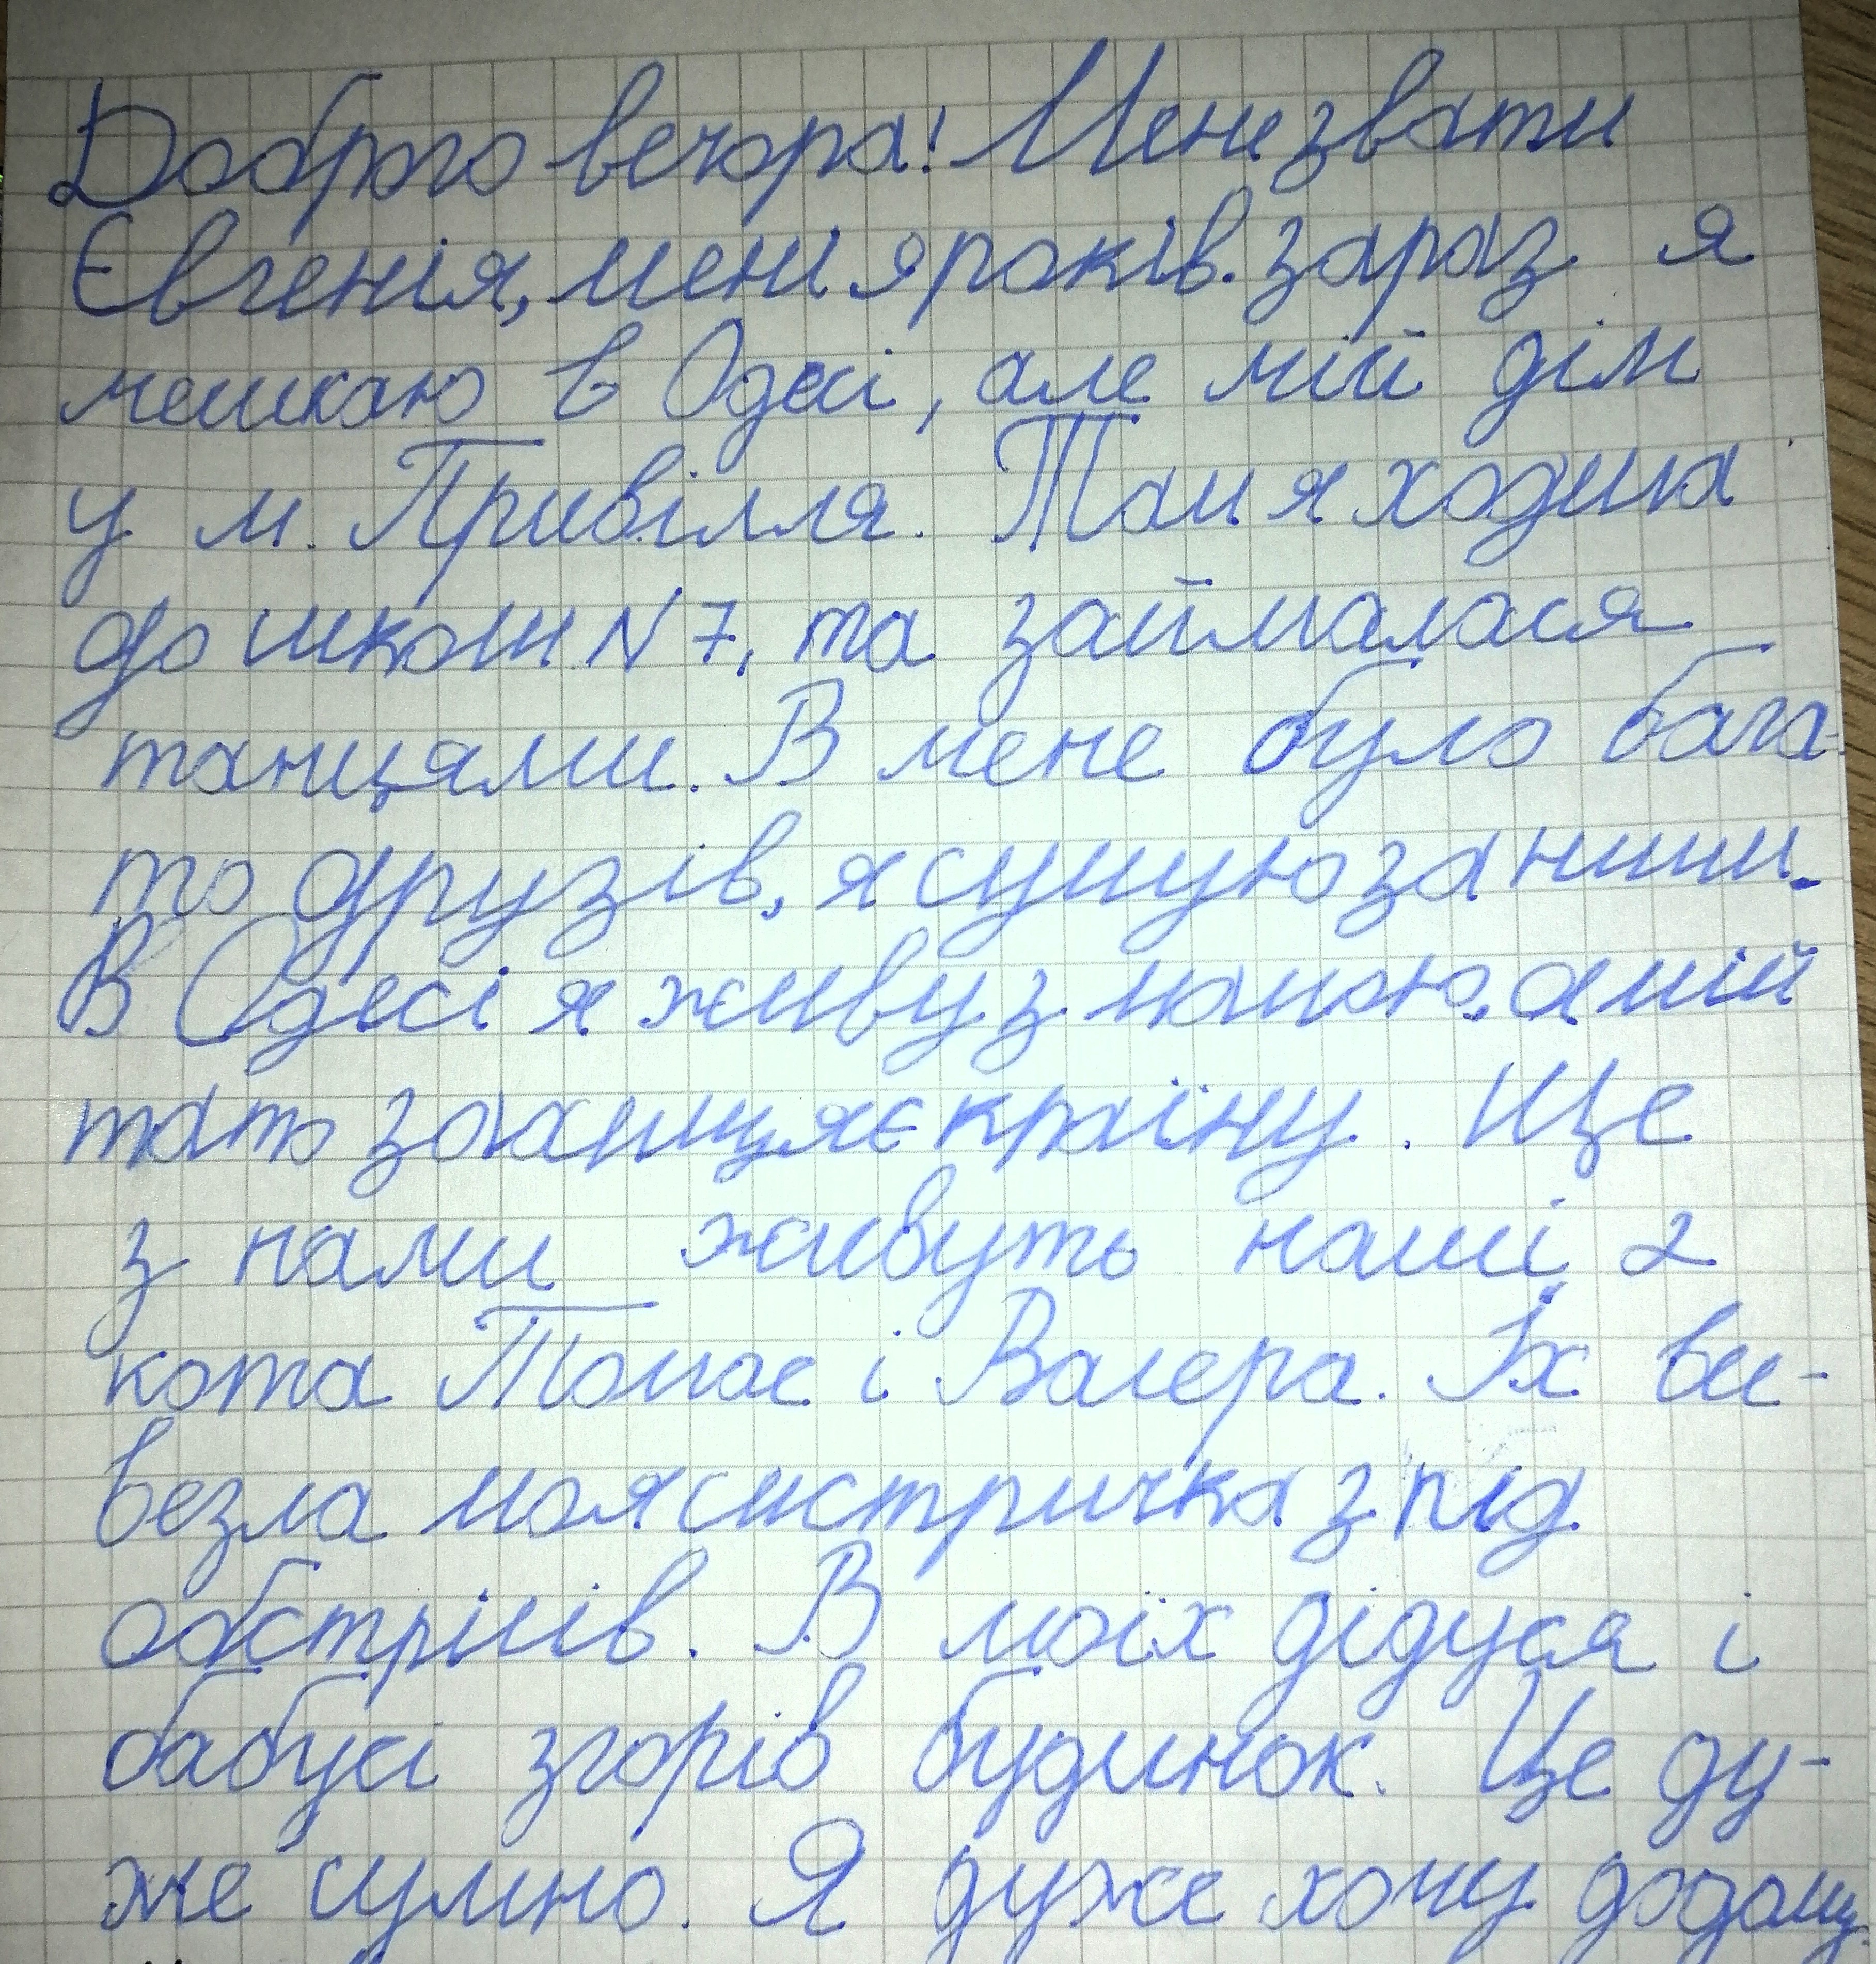 Доброго вечора! Мене звати
Євгенія, мені 9 років. зараз я
мешкаю в Одесі, але мій дім
у м. Привілля. Там я ходила
до школи N 7, та займалася
танцями. В мене було бага-
то друзів, я сумую за ними.
В Одесі я живу з мамою, а мій
тато захищяє країну. Ще
з нами живуть наші 2
кота Томас і Валера. Їх ви-
везла моя систричка з під
обстрілів. В моїх дідуся і
бабусі згорів будинок. Це ду-
же сумно. Я дуже хочу додому.